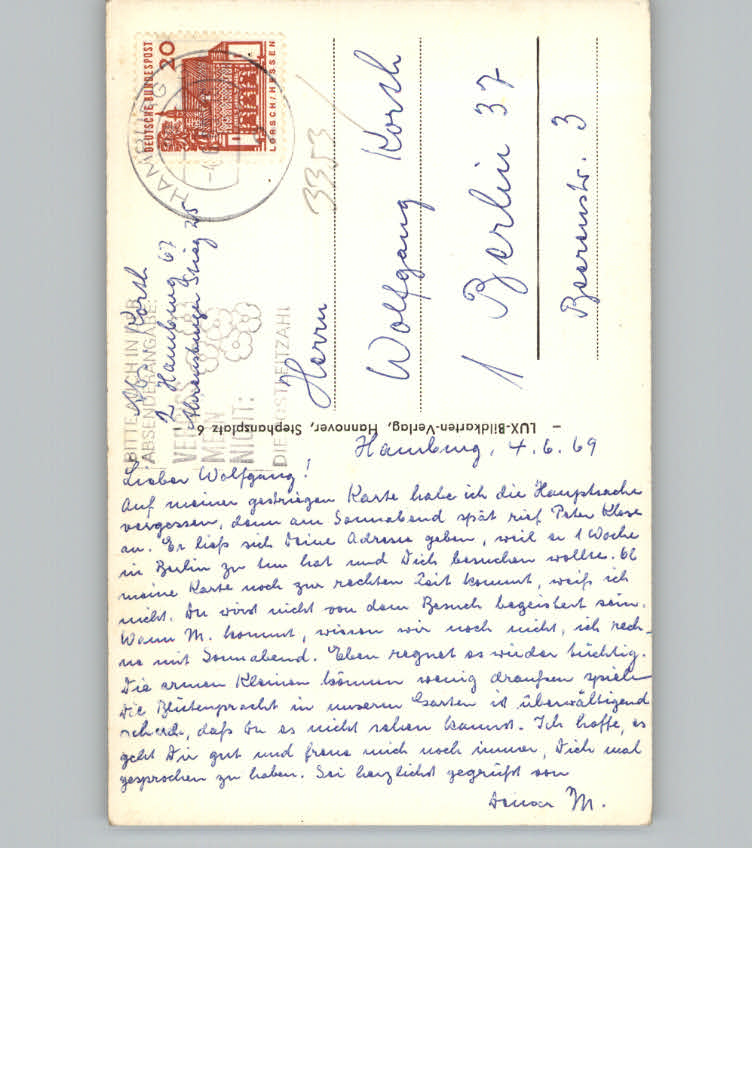 DEUTSCHE BUNDESPOST
20
LORSCH/HESSEN
HAMBURG
3353
BITTE AUCH IN DER
ABSENDERANGABE:
VERGISS
MEIN
NICHT:
DIE POSTLEITZAHL
Korth
2 Hamburg 67
Ahrensburger Stieg 25
Herrn
Wolfgang Korth
1 Berlin 37
Beerenstr. 3
– LUX-Bildkarten-Verlag, Hannover, Stephansplatz 6
Hamburg, 4.6.69
Lieber Wolfgang!
Auf meiner gestrigen Karte habe ich die Hauptsache
vergessen, denn am Sonnabend spät rief Peter Klose
an. Er ließ sich Deine Adresse geben, weil er 1 Woche
in Berlin zu tun hat und Dich besuchen wollte. Ob
meine Karte noch zur rechten Zeit kommt, weiß ich
nicht. Du wirst nicht von dem Besuch begeistert sein.
Wann M. kommt, wissen wir noch nicht, ich rech-
ne mit Sonnabend. Eben regnet es wieder tüchtig.
Die armen Kleinen können wenig draußen spielen
Die Blütenpracht in unserm Garten ist überwältigend
schade, daß Du es nicht sehen kannst. Ich hoffe, es
geht Dir gut und freue mich noch immer, Dich mal
gesprochen zu haben. Sei herzlichst gegrüßt von
Deiner M.